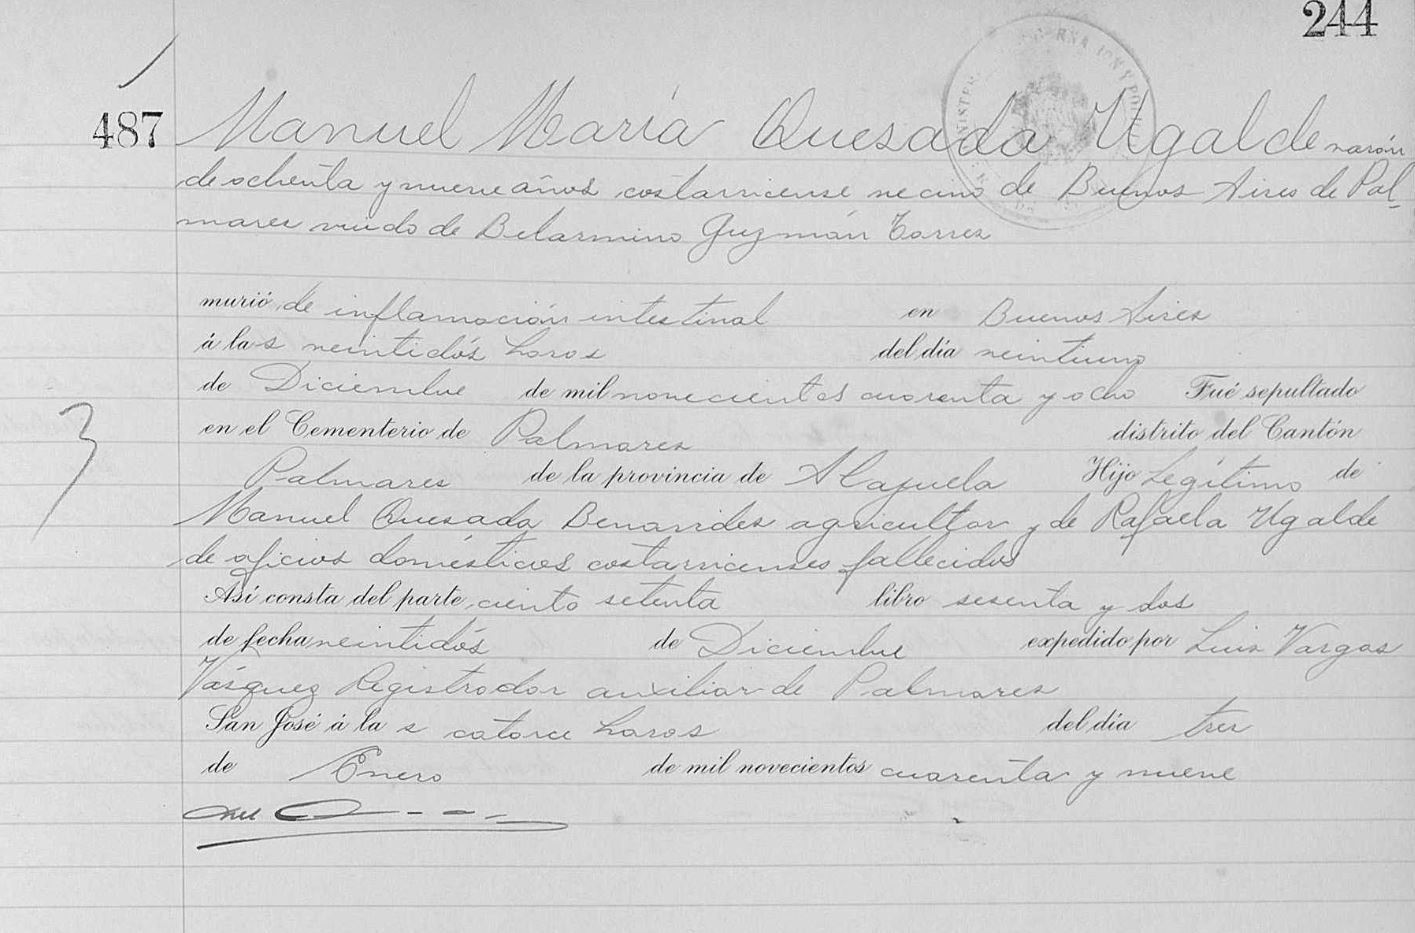 244
487 Manuel María Quesada Ugalde varón
de ochenta y nueve años costarricense vecino de Buenos Aires de Pal-
mares viudo de Belarmina Guzmán Torres
murió de inflamación intestinal en Buenos Aires
á las veintidós horas del día veintiuno
de Diciembre de mil novecientos cuarenta y ocho Fué sepultado
en el Cementerio de Palmares distrito del Cantón
Palmares de la provincia de Alajuela Hijo Legítimo de
Manuel Quesada Benavides agricultor y de Rafaela Ugalde
de oficios domésticos costarricenses fallecidos
Así consta del parte ciento setenta libro sesenta y dos
de fecha veintidós de Diciembre expedido por Luis Vargas
Vásquez Registrador auxiliar de Palmares
San José á las catorce horas del día tres
de Enero de mil novecientos cuarenta y nueve